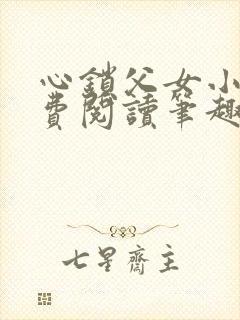 心鎖父女小
費閱讀筆趣
七星齋主